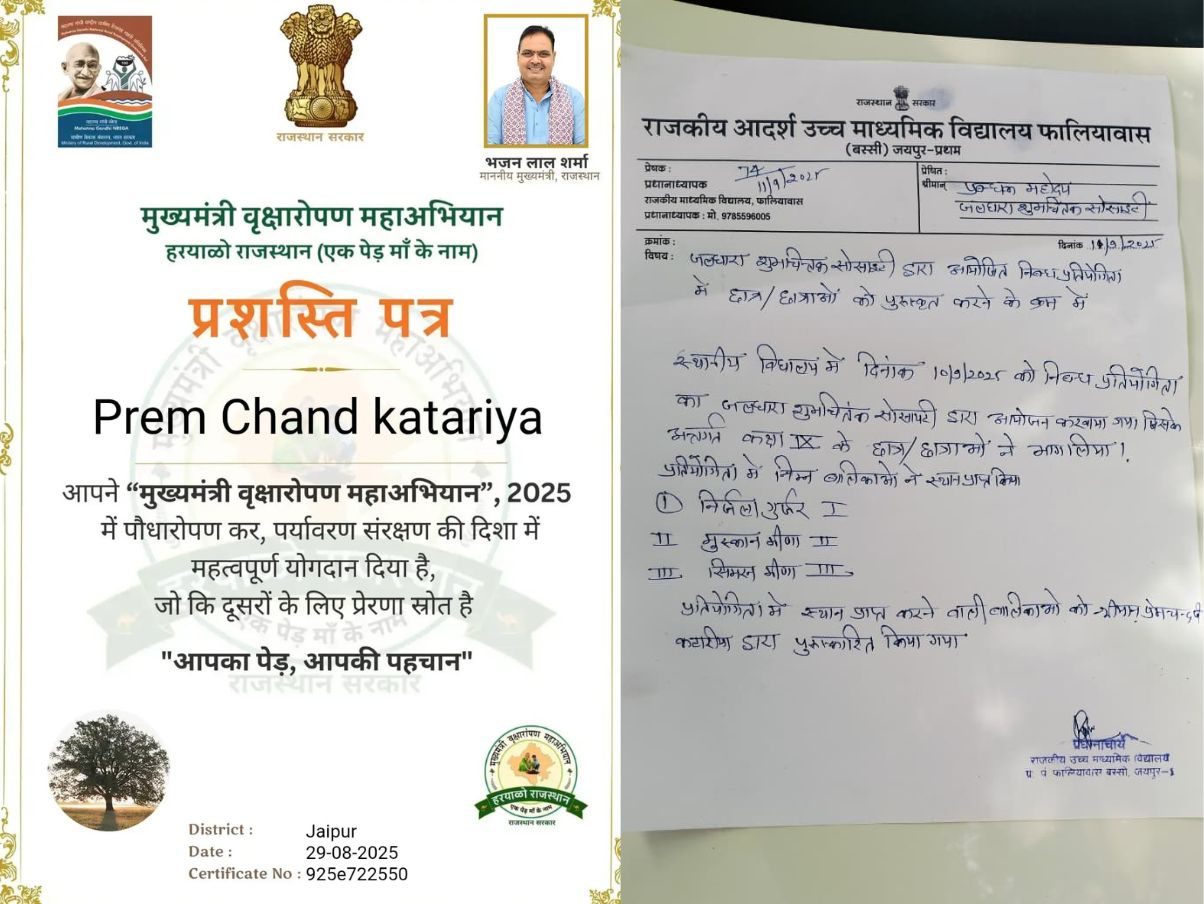 महात्मा गांधी नरेगा
Mahatma Gandhi NREGA
ग्रामीण विकास मंत्रालय, भारत सरकार
Ministry of Rural Development, Govt. of India
राजस्थान सरकार
भजन लाल शर्मा
माननीय मुख्यमंत्री, राजस्थान
मुख्यमंत्री वृक्षारोपण महाअभियान
हरयाळो राजस्थान (एक पेड़ माँ के नाम)
प्रशस्ति पत्र
Prem Chand katariya
आपने “मुख्यमंत्री वृक्षारोपण महाअभियान”, 2025
में पौधारोपण कर, पर्यावरण संरक्षण की दिशा में
महत्वपूर्ण योगदान दिया है,
जो कि दूसरों के लिए प्रेरणा स्रोत है
"आपका पेड़, आपकी पहचान"
मुख्यमंत्री वृक्षारोपण महाअभियान
हरयाळो राजस्थान
एक पेड़ माँ के नाम
राजस्थान सरकार
मुख्यमंत्री वृक्षारोपण महाअभियान
हरयाळो राजस्थान
एक पेड़ माँ के नाम
राजस्थान सरकार
District : Jaipur
Date : 29-08-2025
Certificate No : 925e722550
राजस्थान सरकार
राजकीय आदर्श उच्च माध्यमिक विद्यालय फालियावास
(बस्सी) जयपुर-प्रथम
प्रेषक : 74
प्रधानाध्यापक 11/9/2025
राजकीय माध्यमिक विद्यालय, फालियावास
प्रधानाध्यापक : मो. 9785596005
प्रेषित :
श्रीमान् प्रबन्धक महोदय
जलधारा शुभचिंतक सोसाइटी
क्रमांक : दिनांक 11/9/2025
विषय : जलधारा शुभचिंतक सोसाइटी द्वारा आयोजित निबन्ध प्रतियोगिता
में छात्र/छात्राओं को पुरूस्कृत करने के क्रम में
स्थानीय विद्यालय में दिनांक 10/9/2025 को निबन्ध प्रतियोगिता
का जलधारा शुभचिंतक सोसायटी द्वारा आयोजन करवाया गया जिसके
अन्तर्गत कक्षा IX के छात्र/छात्राओं ने भाग लिया।
प्रतियोगिता में निम्न बालिकाओं ने स्थान प्राप्त किया
① निर्जला गुर्जर I
II मुस्कान मीणा II
III सिमरन मीणा III
प्रतियोगिता में स्थान प्राप्त करने वाली बालिकाओं को श्रीमान् प्रेमचन्द
कटारीया द्वारा पुरूस्कारित किया गया
प्रधानाचार्य
राजकीय उच्च माध्यमिक विद्यालय
फालियावास बस्सी, जयपुर-I